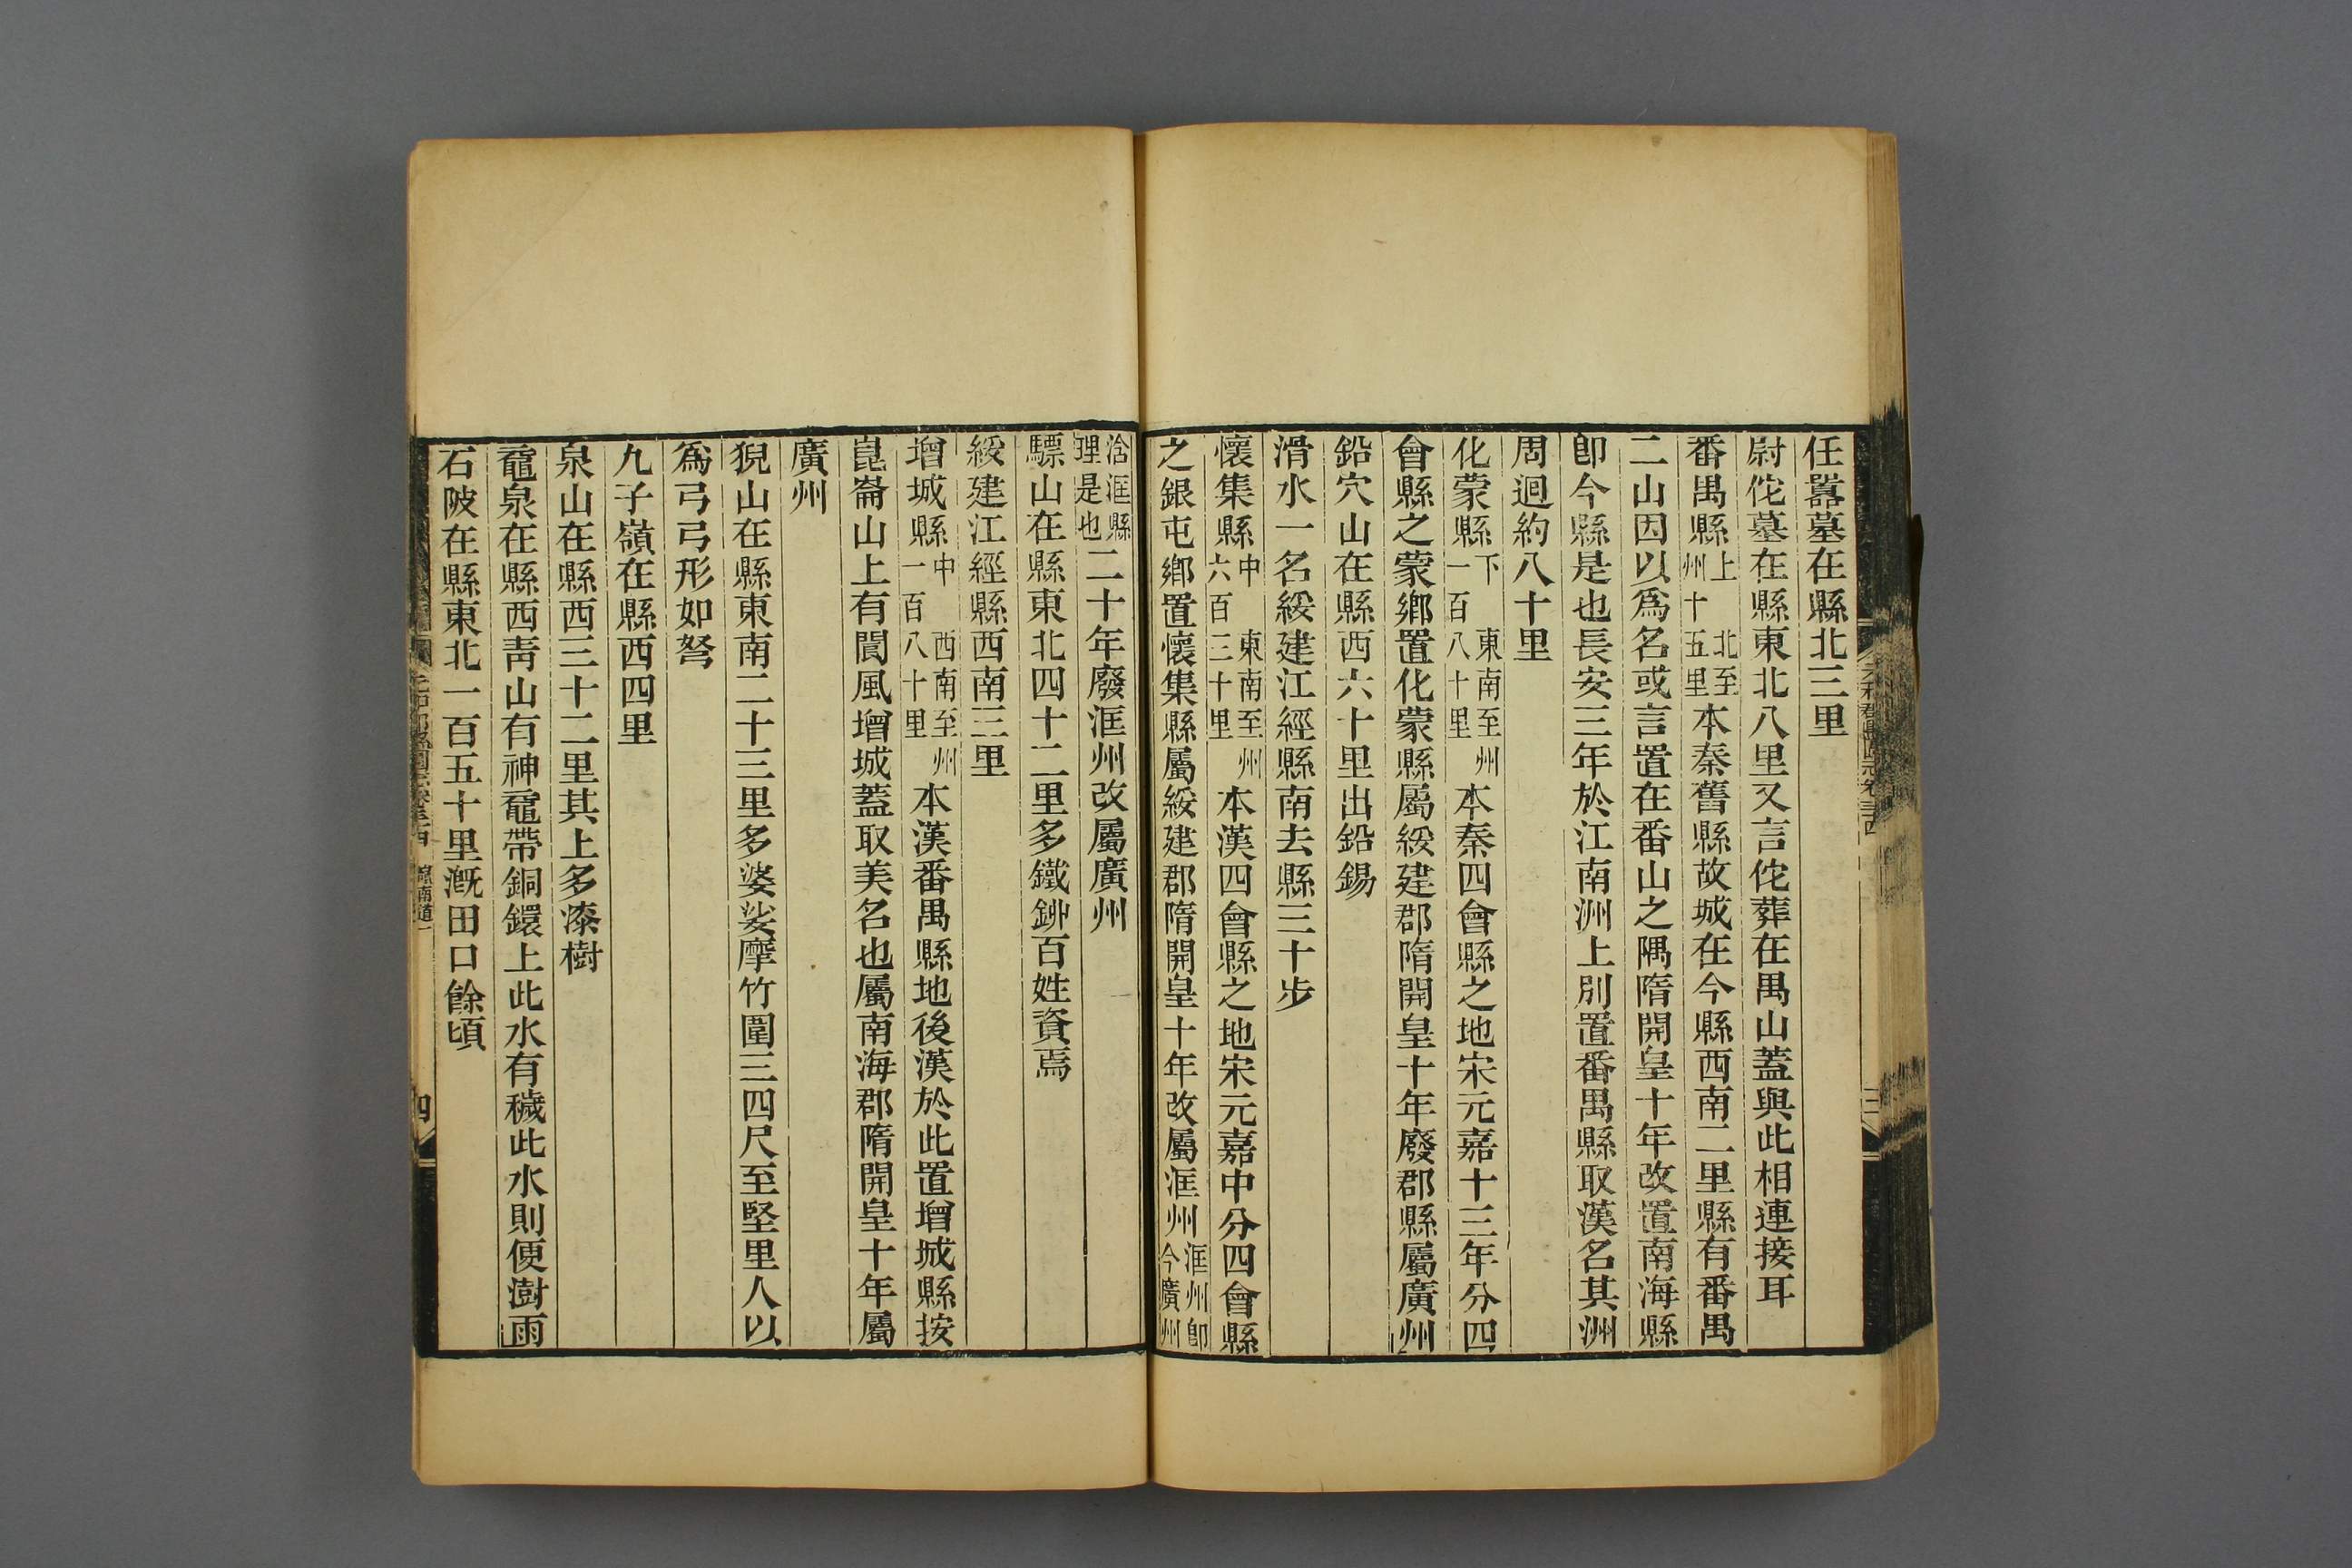 任囂墓在縣北三里
尉佗墓在縣東北八里又言佗葬在禺山蓋與此相連接耳
番禺縣上 北至州十五里本秦舊縣故城在今縣西南二里縣有番禺
二山因以爲名或言置在番山之隅隋開皇十年改置南海縣
卽今縣是也長安三年於江南洲上別置番禺縣取漢名其洲
周迴約八十里
化蒙縣下 東南至州一百八十里本秦四會縣之地宋元嘉十三年分四
會縣之蒙鄕置化蒙縣屬綏建郡隋開皇十年廢郡縣屬廣州
鉛穴山在縣西六十里出鉛錫
滑水一名綏建江經縣南去縣三十步
懷集縣中 東南至州六百三十里本漢四會縣之地宋元嘉中分四會縣
之銀屯鄕置懷集縣屬綏建郡隋開皇十年改屬洭州洭州卽今廣州
浛洭縣理是也二十年廢洭州改屬廣州
驃山在縣東北四十二里多鐵鉚百姓資焉
綏建江經縣西南三里
增城縣中 西南至州一百八十里本漢番禺縣地後漢於此置增城縣按
崑崙山上有閬風增城蓋取美名也屬南海郡隋開皇十年屬
廣州
猊山在縣東南二十三里多婆娑摩竹圍三四尺至堅里人以
爲弓弓形如弩
九子嶺在縣西四里
泉山在縣西三十二里其上多漆樹
黿泉在縣西靑山有神黿帶銅鐶上此水有穢此水則便澍雨
石陂在縣東北一百五十里漑田口餘頃
元和郡縣圖志卷三十四 嶺南道一
四